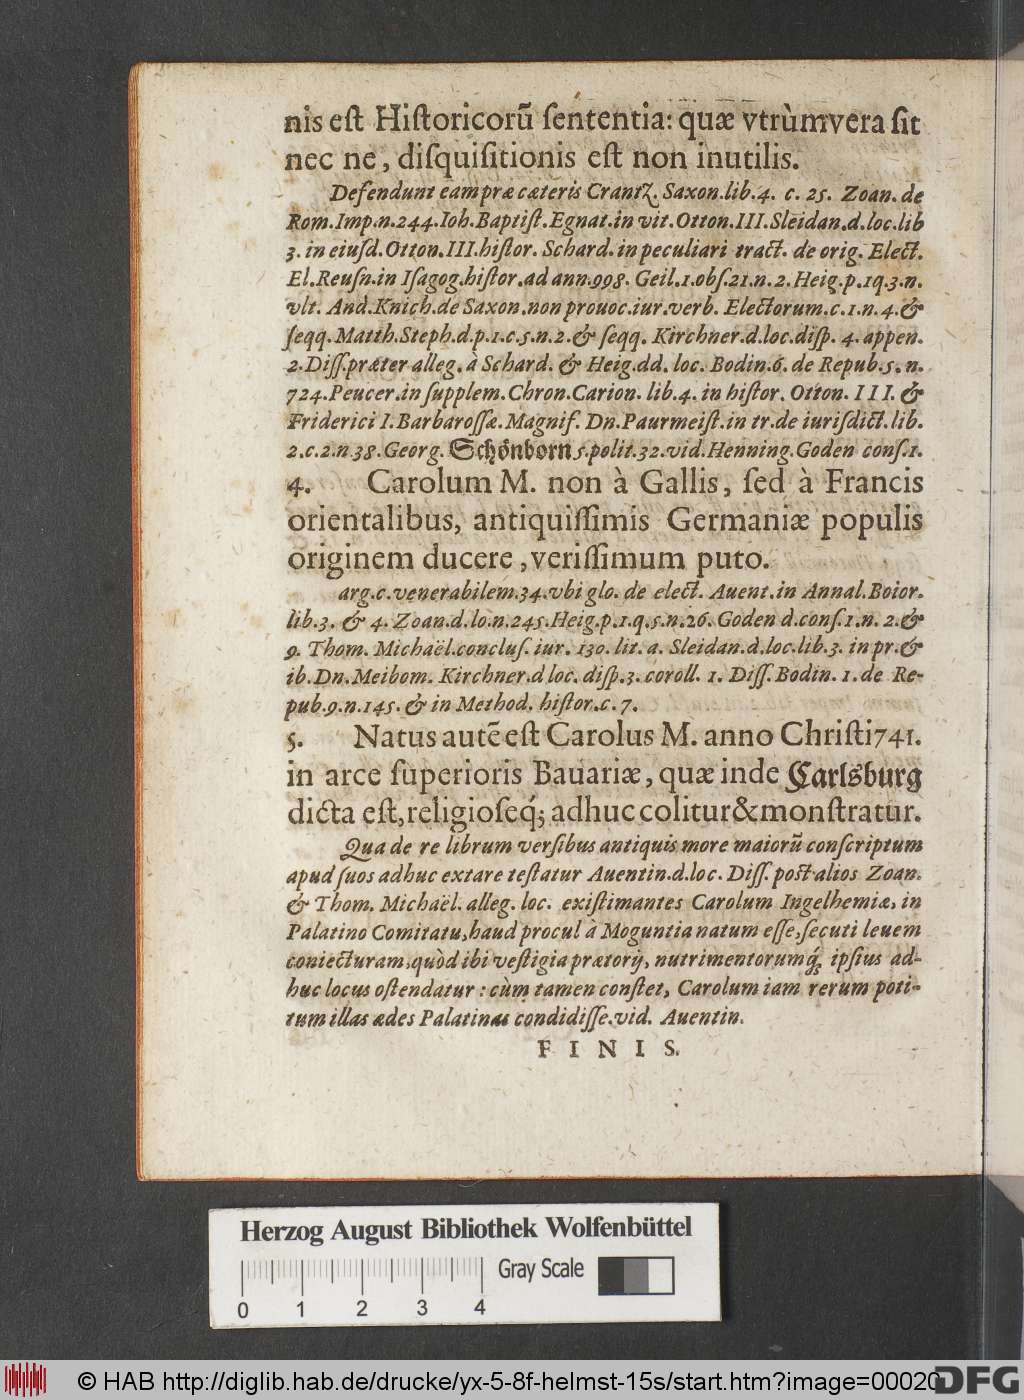 nis est Historicorũ sententia: quæ vtrùm vera sit
nec ne, disquisitionis est non inutilis.
Defendunt eam præ cæteris Crantz. Saxon. lib. 4. c. 25. Zoan. de
Rom. Imp. n. 244. Ioh. Baptist. Egnat. in vit. Otton. III. Sleidan. d. loc. lib
3. in eiusd. Otton. III. histor. Schard. in peculiari tract. de orig. Elect.
El. Reusn. in Isagog. histor. ad ann. 998. Geil. 1. obs. 21. n. 2. Heig. p. 1 q. 3. n.
vlt. And. Knich. de Saxon. non prouoc. iur. verb. Electorum. c. 1. n. 4. &
seqq. Matth. Steph. d. p. 1. c. 5. n. 2. & seqq. Kirchner. d. loc. disp. 4. appen.
2. Diss. præter alleg. à Schard. & Heig. dd. loc. Bodin. 6. de Repub. 5. n.
724. Peucer. in supplem. Chron. Carion. lib. 4. in histor. Otton. III. &
Friderici I. Barbarossæ. Magnif. Dn. Paurmeist. in tr. de iurisdict. lib.
2. c. 2. n. 38. Georg. Schönborn 5. polit. 32. vid. Henning. Goden cons. 1.
4. Carolum M. non à Gallis, sed à Francis
orientalibus, antiquissimis Germaniæ populis
originem ducere, verissimum puto.
arg. c. venerabilem. 34. vbi glo. de elect. Auent. in Annal. Boior.
lib. 3. & 4. Zoan. d. lo. n. 245. Heig. p. 1. q. 5. n. 26. Goden d. cons. 1. n. 2. &
9. Thom. Michaël. conclus. iur. 130. lit. a. Sleidan. d. loc. lib. 3. in pr. &
ib. Dn. Meibom. Kirchner. d loc. disp. 3. coroll. 1. Diss. Bodin. 1. de Re-
pub. 9. n. 145. & in Method. histor. c. 7.
5. Natus autẽ est Carolus M. anno Christi 741.
in arce superioris Bauariæ, quæ inde Carlsburg
dicta est, religioseq́; adhuc colitur & monstratur.
Qua de re librum versibus antiquis more maiorũ conscriptum
apud suos adhuc extare testatur Auentin. d. loc. Diss. post alios Zoan.
& Thom. Michaël. alleg. loc. existimantes Carolum Ingelhemiæ, in
Palatino Comitatu, haud procul à Moguntia natum esse, secuti leuem
coniecturam, quòd ibi vestigia prætorij, nutrimentorumq́; ipsius ad-
huc locus ostendatur: cùm tamen constet, Carolum iam rerum poti-
tum illas ædes Palatinas condidisse. vid. Auentin.
FINIS.
Herzog August Bibliothek Wolfenbüttel
0 1 2 3 4 Gray Scale
© HAB http://diglib.hab.de/drucke/yx-5-8f-helmst-15s/start.htm?image=00020
DFG